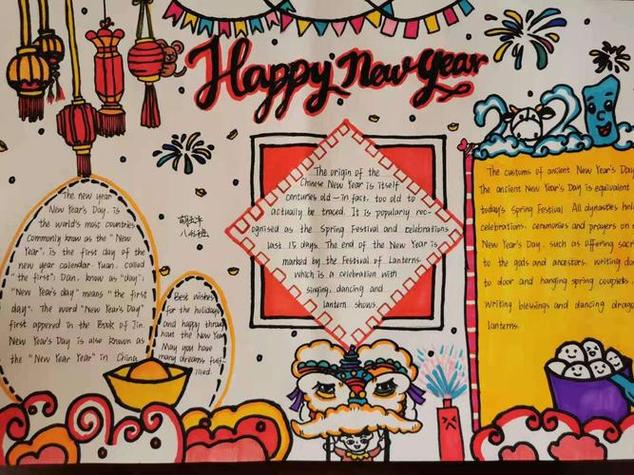 Happy New Year
The new year
New Year's Day, is
the world's most countries
commonly know as the "New
Year", is the first day of the
new year calendar Yuan, called
"the first"; Dan, know as "day";
"New Year's day" means "the first
day". The word "New Year's Day"
first appered in the Book of Jin
New Year's Day is also known as
the "New Year Year" in China
Best wishes
for the holidays
and happy throu
hout the New Year
May you have
many dreams fulf
illed.
The origin of the
Chinese New Year is itself
centuries old — in fact, too old to
actually be traced. It is popularly rec-
ognised as the Spring Festival and celebrations
last 15 days. The end of the New Year is
marked by the Festival of Lanterns,
which is a celebration with
singing, dancing and
lantern shows.
202
The customs of ancient New Year's Day
The ancient New Year's Day is equivalent
today's Spring Festival. All dynasties hel
celebrations, ceremonies and prayers on
New Year's Day, such as offering sacr
to the gods and ancestors, writing do
to door and hanging spring couplets
writing blessings and dancing drago
lanterns.